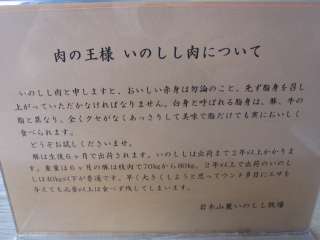 肉の王様 いのしし肉について
いのしし肉と申しますと、おいしい赤身は勿論のこと、先ず脂身を召し
上がっていただかなければなりません。白身と呼ばれる脂身は、豚、牛の
脂と異なり、全くクセがなくあっさりして美味で脂だけでも実においしく
食べられます。
どうぞお試しくださいませ。
豚は生後6ヶ月で出荷されます。いのししは出荷まで2年以上かかりま
す。重量は6ヶ月の豚は枝肉で70kgから80kg、2年以上で出荷のいのし
しは40kg以下が普通です。早く大きくしようと思ってウンと多目にエサを
与えても必要以上は食べず残してしまいます。
岩木山麓いのしし牧場